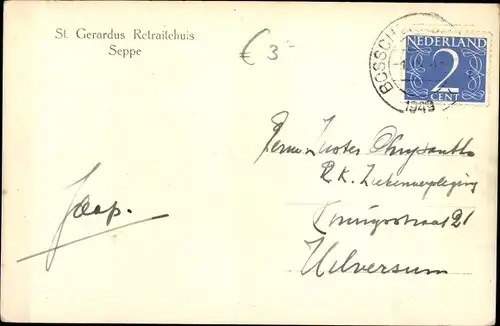 St. Gerardus Retraitehuis
Seppe
€ 3-
BOSSCH
1949
NEDERLAND
2
CENT
Zuster
R.K. Ziekenverpleging
Koningsstraat 21
Hilversum
Jaap.